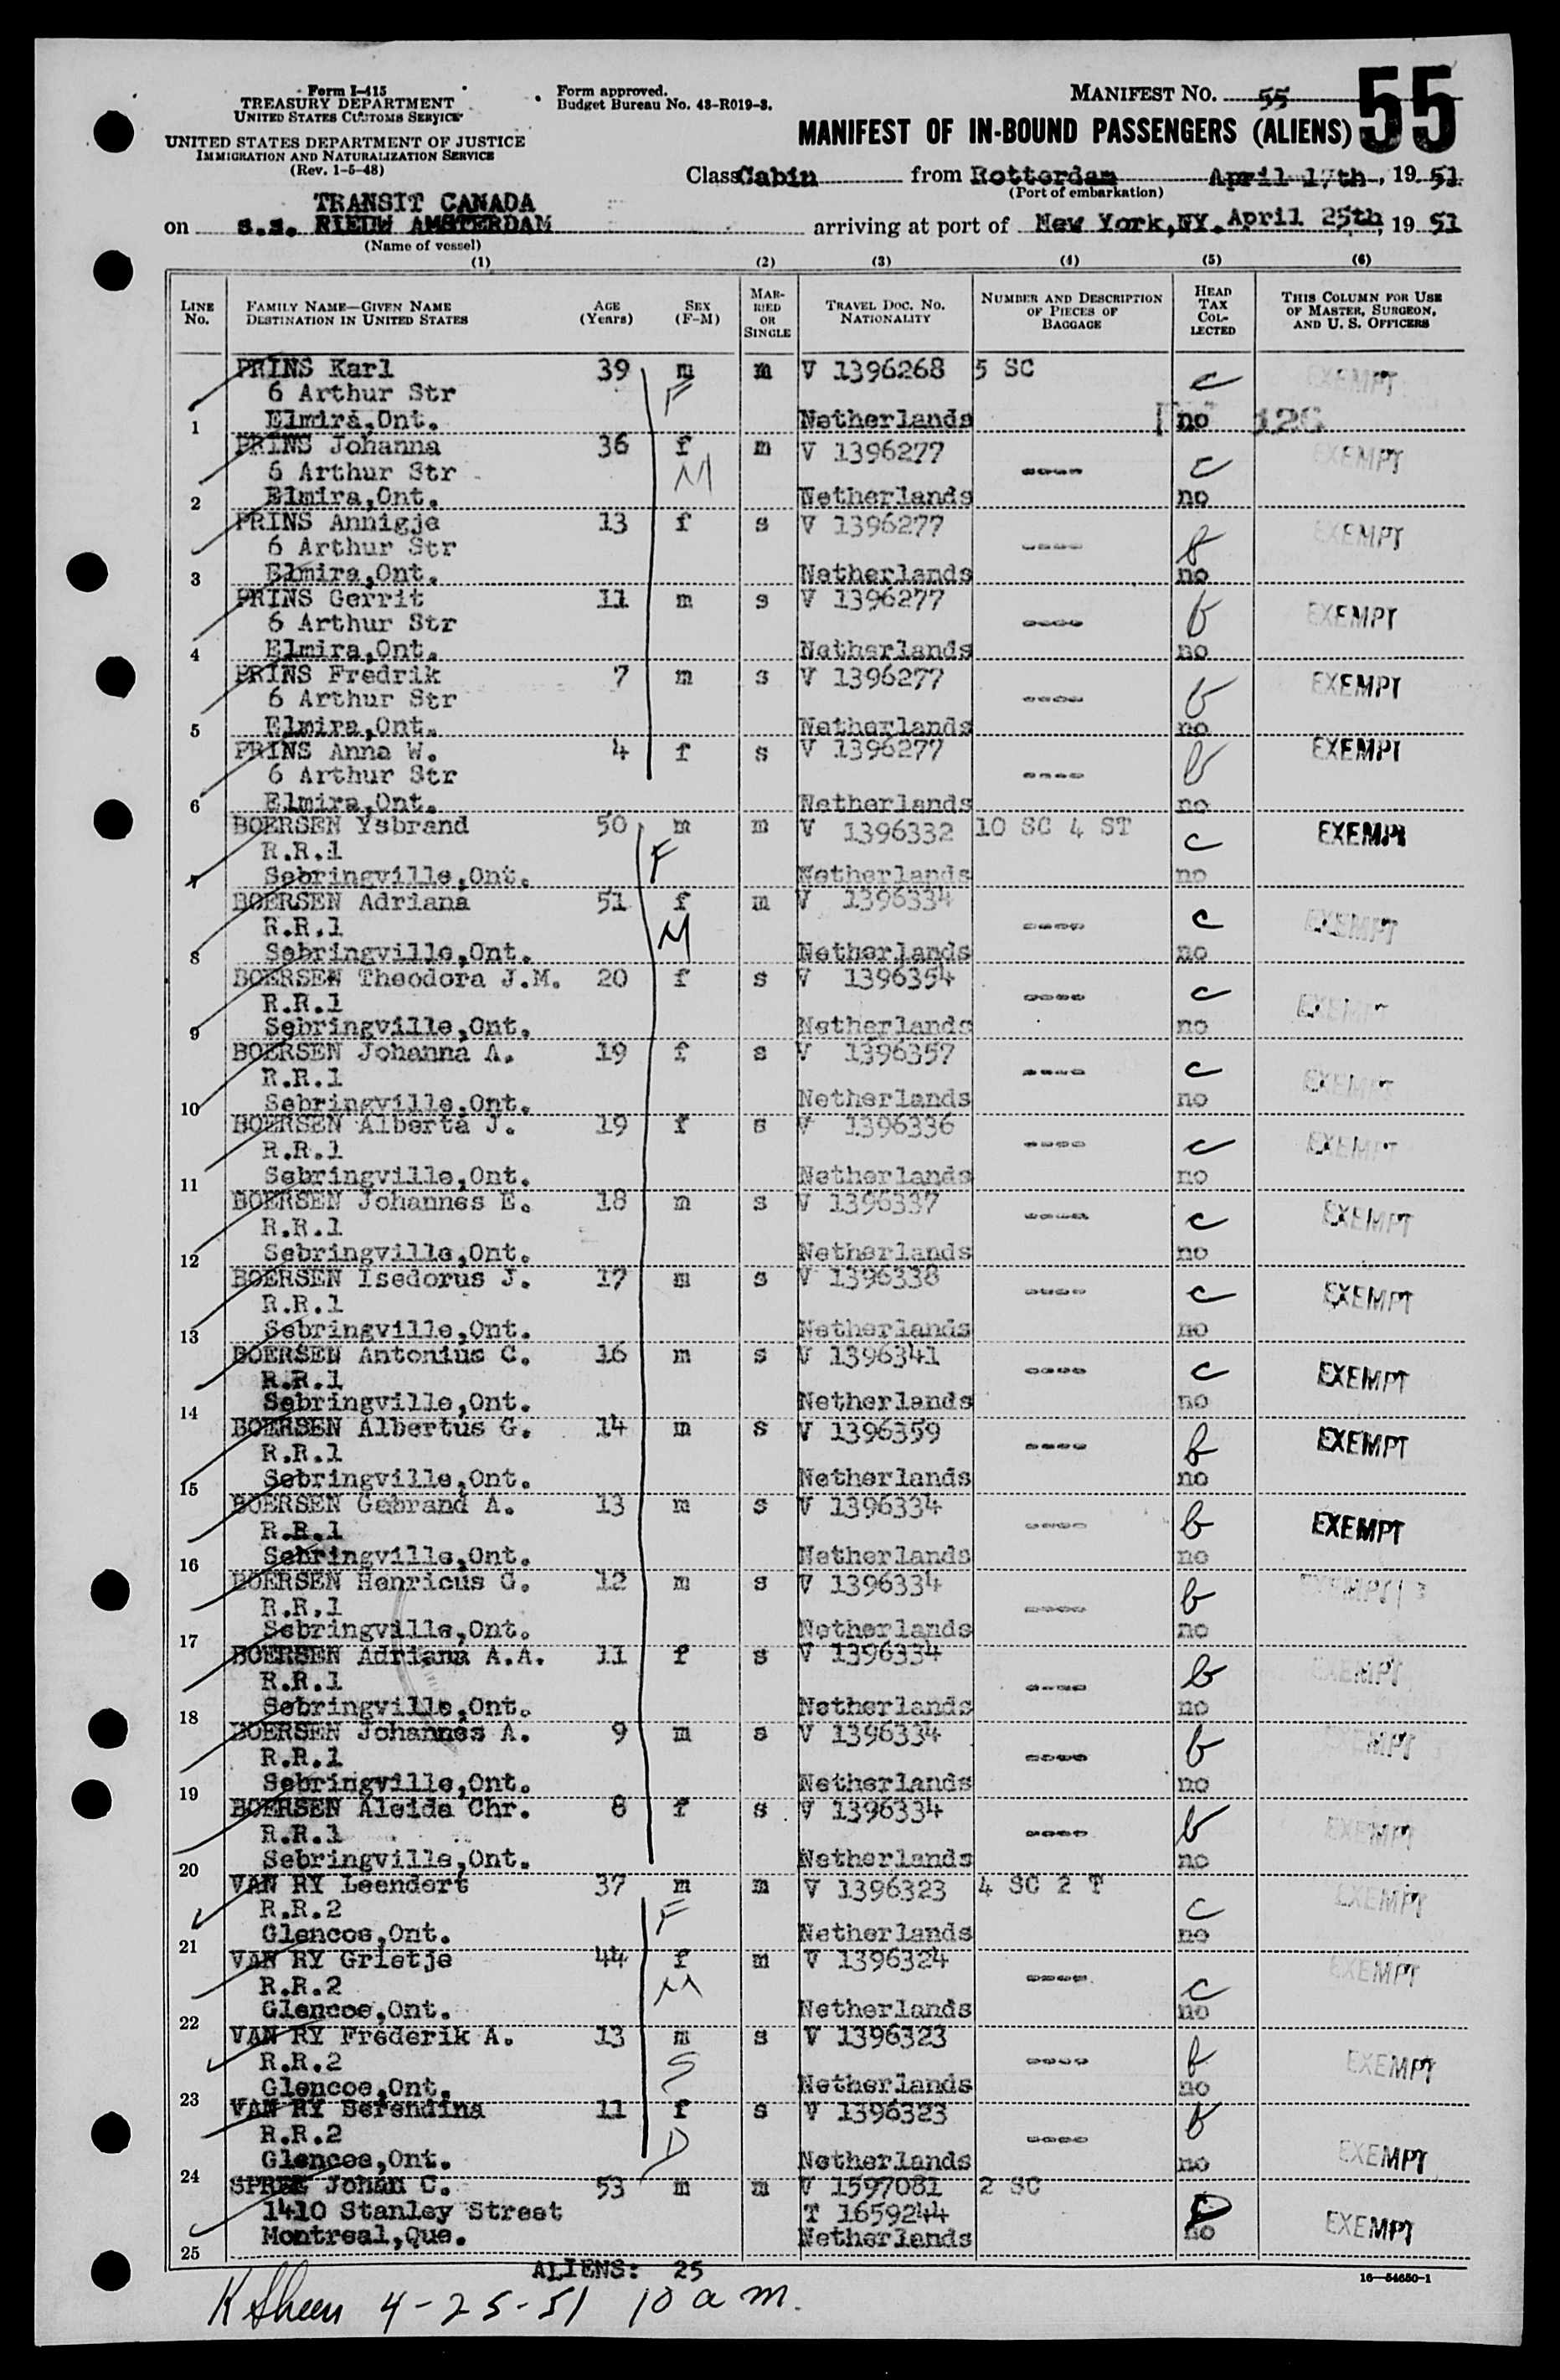 Form I-415
TREASURY DEPARTMENT
UNITED STATES CUSTOMS SERVICE
UNITED STATES DEPARTMENT OF JUSTICE
IMMIGRATION AND NATURALIZATION SERVICE
(Rev. 1-5-48)
Form approved.
Budget Bureau No. 43-R019-3.
MANIFEST NO. 55
55
MANIFEST OF IN-BOUND PASSENGERS (ALIENS)
Class Cabin from Rotterdam April 17th, 19 51
(Port of embarkation)
TRANSIT CANADA
on s.s. NIEUW AMSTERDAM arriving at port of New York,NY. April 25th, 19 51
(Name of vessel)
(1) (2) (3) (4) (5) (6)
LINE NO. FAMILY NAME—GIVEN NAME DESTINATION IN UNITED STATES AGE (Years) SEX (F-M) MARRIED OR SINGLE TRAVEL DOC. NO. NATIONALITY NUMBER AND DESCRIPTION OF PIECES OF BAGGAGE HEAD TAX COLLECTED THIS COLUMN FOR USE OF MASTER, SURGEON, AND U. S. OFFICERS
PRINS Karl 39 m m V 1396268 5 SC c EXEMPT
6 Arthur Str F
1 Elmira,Ont. Netherlands no 126
PRINS Johanna 36 f m V 1396277 EXEMPT
6 Arthur Str M ---- c
2 Elmira,Ont. Netherlands no
PRINS Annigje 13 f s V 1396277 EXEMPT
6 Arthur Str ---- b
3 Elmira,Ont. Netherlands no
PRINS Gerrit 11 m s V 1396277 EXEMPT
6 Arthur Str ---- b
4 Elmira,Ont. Netherlands no
PRINS Fredrik 7 m s V 1396277 EXEMPT
6 Arthur Str ---- b
5 Elmira,Ont. Netherlands no
PRINS Anna W. 4 f s V 1396277 EXEMPT
6 Arthur Str ---- b
6 Elmira,Ont. Netherlands no
BOERSEN Ysbrand 50 m m V 1396332 10 SC 4 ST EXEMPT
R.R.1 F c
7 Sebringville,Ont. Netherlands no
BOERSEN Adriana 51 f m V 1396334 EXEMPT
R.R.1 M ---- c
8 Sebringville,Ont. Netherlands no
BOERSEN Theodora J.M. 20 f s V 1396354
R.R.1 ---- c EXEMPT
9 Sebringville,Ont. Netherlands no
BOERSEN Johanna A. 19 f s V 1396357
R.R.1 ---- c EXEMPT
10 Sebringville,Ont. Netherlands no
BOERSEN Alberta J. 19 f s V 1396336
R.R.1 ---- c EXEMPT
11 Sebringville,Ont. Netherlands no
BOERSEN Johannes E. 18 m s V 1396337
R.R.1 ---- c EXEMPT
12 Sebringville,Ont. Netherlands no
BOERSEN Isedorus J. 17 m s V 1396338
R.R.1 ---- c EXEMPT
13 Sebringville,Ont. Netherlands no
BOERSEN Antonius C. 16 m s V 1396341
R.R.1 ---- c EXEMPT
14 Sebringville,Ont. Netherlands no
BOERSEN Albertus G. 14 m s V 1396359
R.R.1 ---- b EXEMPT
15 Sebringville,Ont. Netherlands no
BOERSEN Gebrand A. 13 m s V 1396334
R.R.1 ---- b EXEMPT
16 Sebringville,Ont. Netherlands no
BOERSEN Henricus G. 12 m s V 1396334
R.R.1 ---- b EXEMPT
17 Sebringville,Ont. Netherlands no
BOERSEN Adriana A.A. 11 f s V 1396334
R.R.1 ---- b EXEMPT
18 Sebringville,Ont. Netherlands no
BOERSEN Johannes A. 9 m s V 1396334
R.R.1 ---- b EXEMPT
19 Sebringville,Ont. Netherlands no
BOERSEN Aleida Chr. 8 f s V 1396334
R.R.1 ---- b EXEMPT
20 Sebringville,Ont. Netherlands no
VAN RY Leendert 37 m m V 1396323 4 SC 2 T EXEMPT
R.R.2 F c
21 Glencoe,Ont. Netherlands no
VAN RY Grietje 44 f m V 1396324 EXEMPT
R.R.2 M ---- c
22 Glencoe,Ont. Netherlands no
VAN RY Frederik A. 13 m s V 1396323
R.R.2 S ---- b EXEMPT
23 Glencoe,Ont. Netherlands no
VAN RY Serendina 11 f s V 1396323
R.R.2 D ---- b EXEMPT
24 Glencoe,Ont. Netherlands no
SPREE Johan C. 53 m m V 1597081 2 SC
1410 Stanley Street T 1659244 EXEMPT
25 Montreal,Que. Netherlands no
ALIENS: 25
16—54650-1
4-25-51 10 a m.